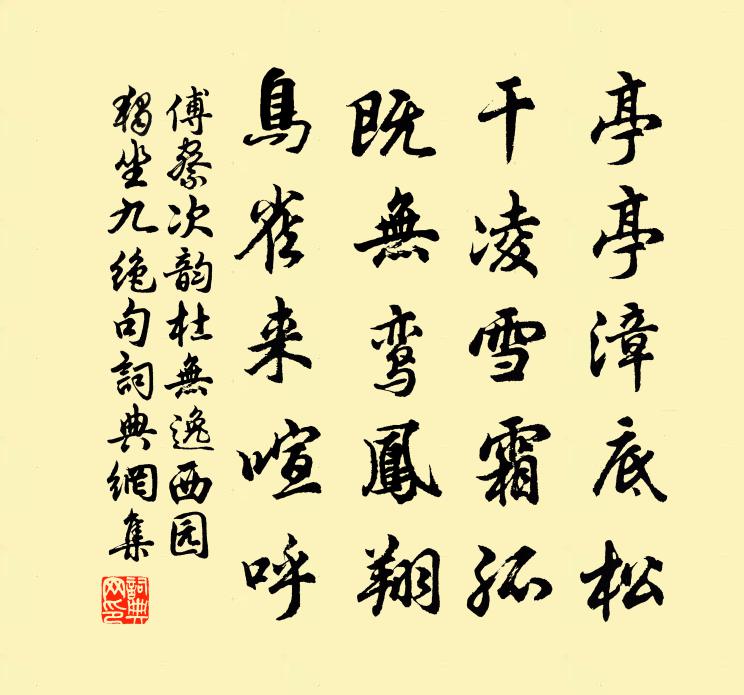 亭亭漳底松
干凌雪霜孤
既無鸾鳳翔
鳥雀来喧呼
傅察次韵杜無逸西园
獨坐九絶句詞典網集
詞典网印